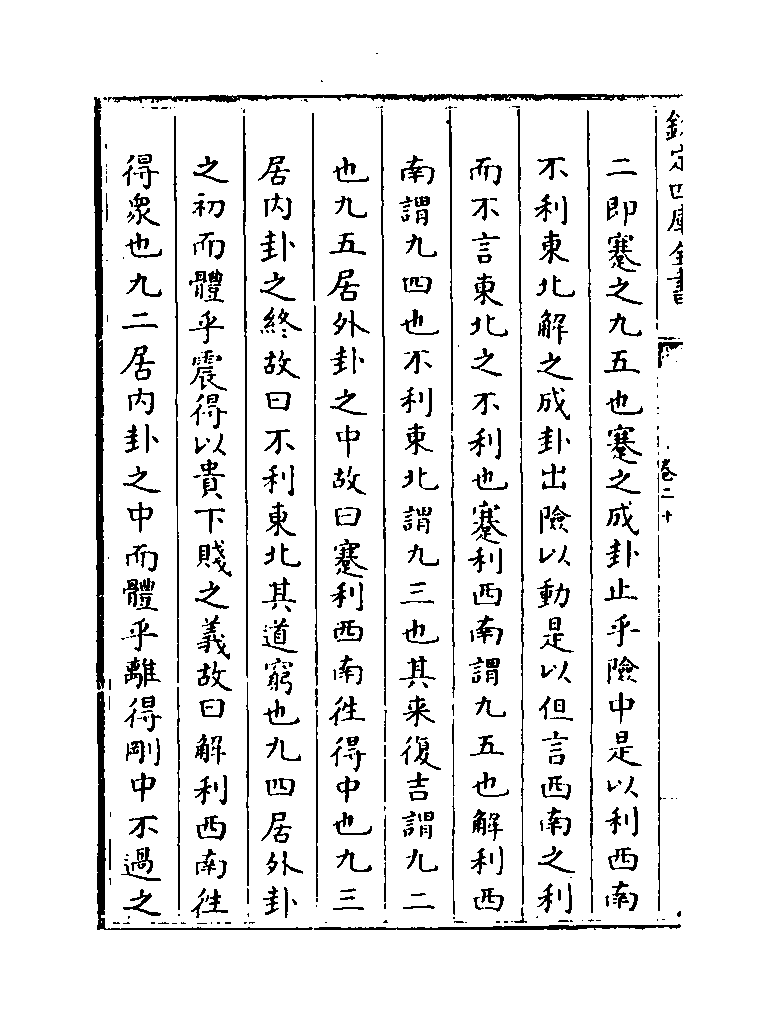 欽定四庫全書
卷二十
二即蹇之九五也蹇之成卦止乎險中是以利西南
不利東北解之成卦出險以動是以但言西南之利
而不言東北之不利也蹇利西南謂九五也解利西
南謂九四也不利東北謂九三也其来復吉謂九二
也九五居外卦之中故曰蹇利西南徃得中也九三
居内卦之終故曰不利東北其道窮也九四居外卦
之初而體乎震得以貴下賤之義故曰解利西南徃
得衆也九二居内卦之中而體乎離得剛中不過之